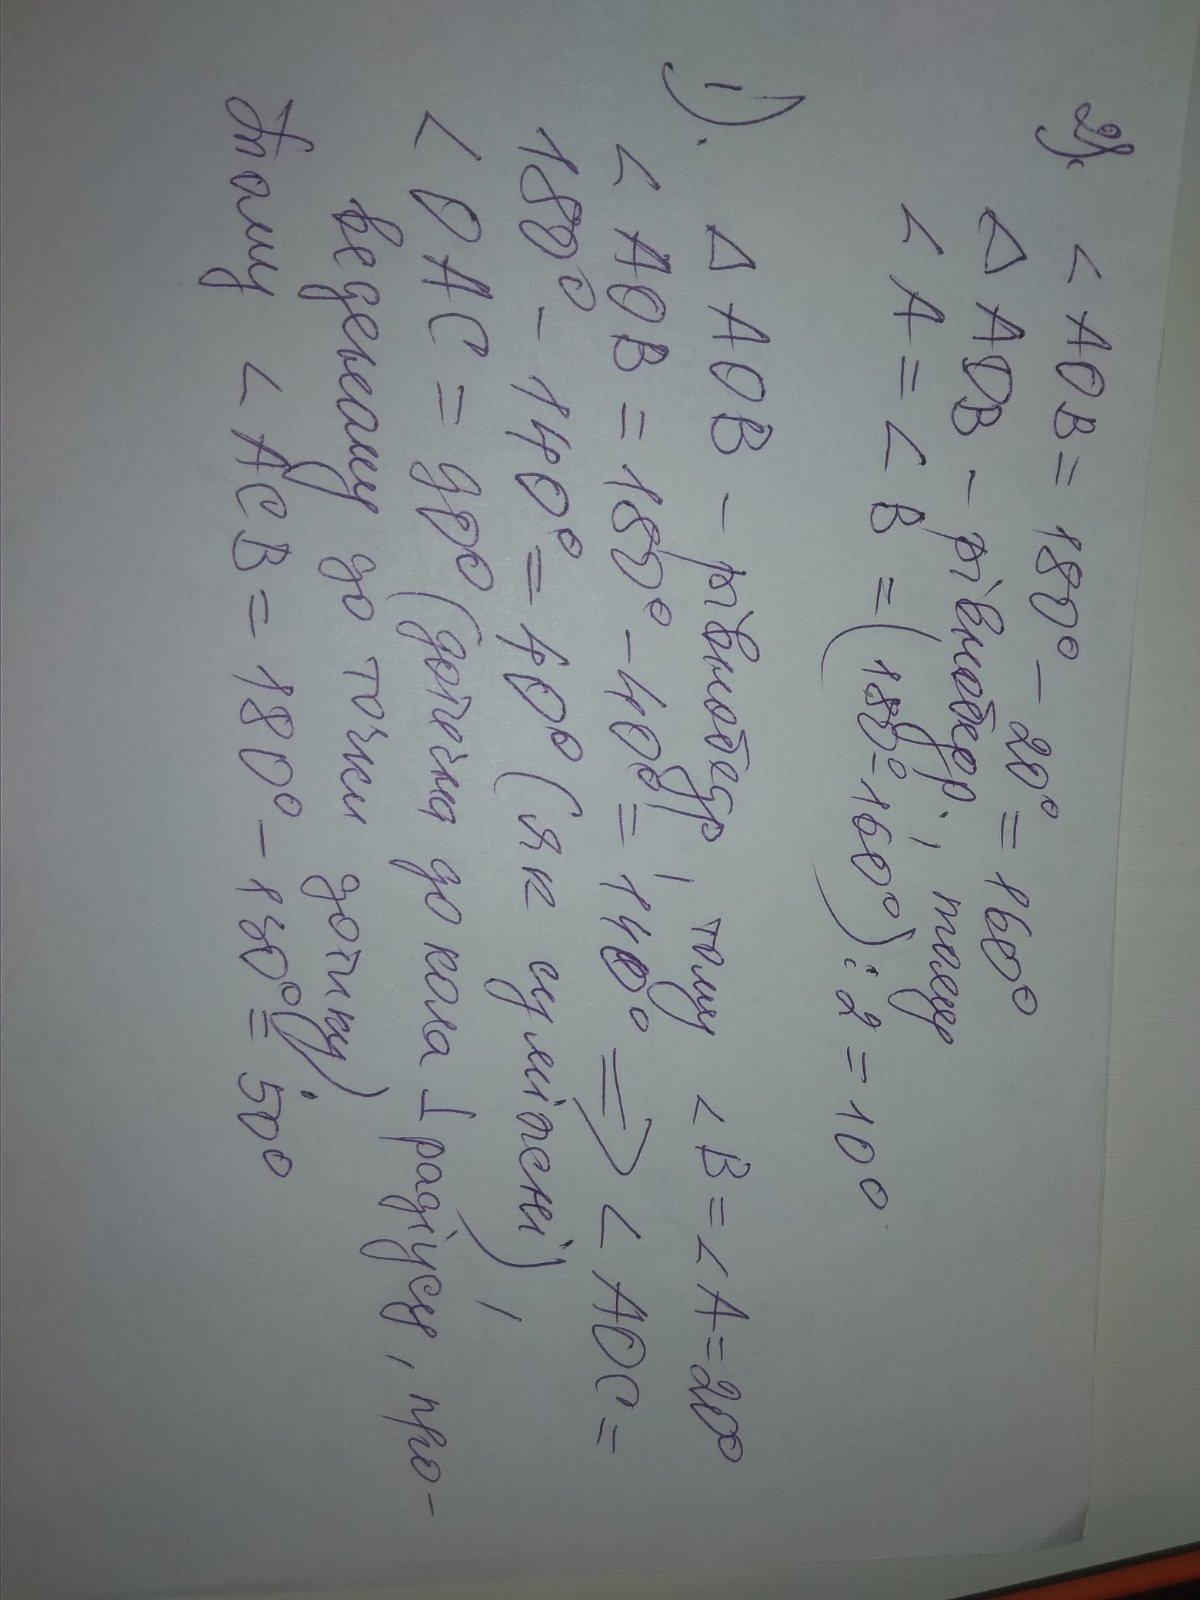 2). < AOB = 180° - 20° = 160°
△ AOB - рівнобедр., тому
< A = < B = (180° - 160°) : 2 = 10°
1). △ AOB - рівнобедр, тому < B = < A = 20°
< AOB = 180° - 40° = 140° => < AOC =
180° - 140° = 40° (як суміжні),
< OAC = 90° (дотична до кола ⊥ радіусу, про-
веденому до точки дотику)
тому < ACB = 180° - 130° = 50°